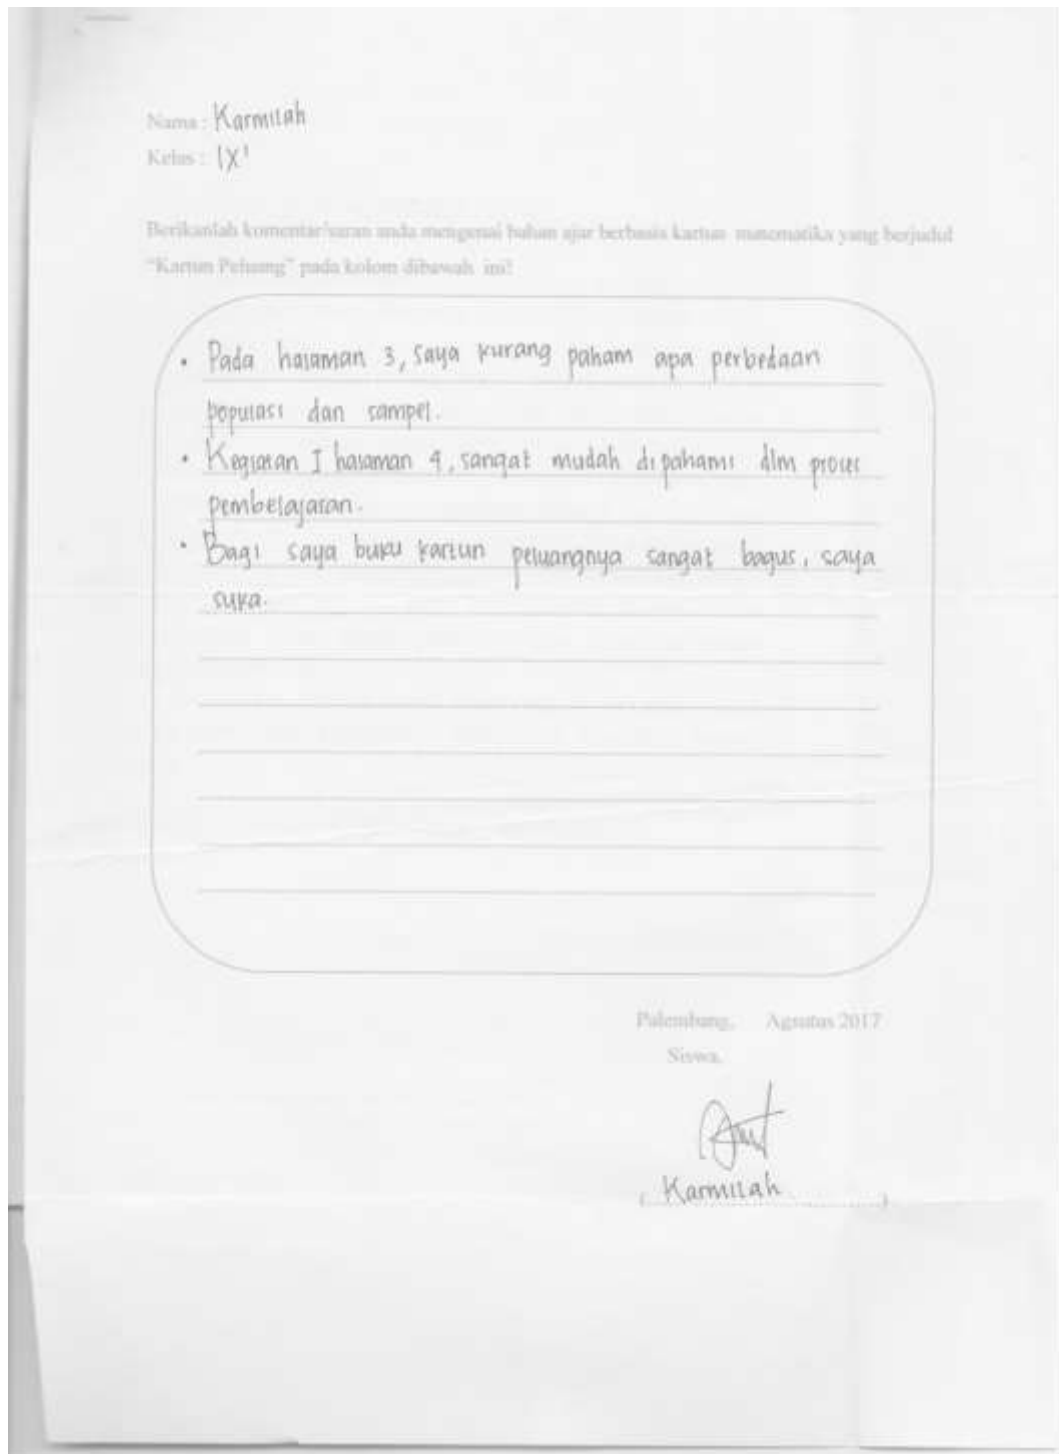 Nama : Karmilah
Kelas : IX¹
Berikanlah komentar/saran anda mengenai bahan ajar berbasis kartun matematika yang berjudul
"Kartun Peluang" pada kolom dibawah ini!
• Pada halaman 3, saya kurang paham apa perbedaan
populasi dan sampel.
• Kegiatan I halaman 4, sangat mudah dipahami dlm proses
pembelajaran.
• Bagi saya buku kartun peluangnya sangat bagus, saya
suka.
Palembang, Agustus 2017
Siswa,
( Karmilah )